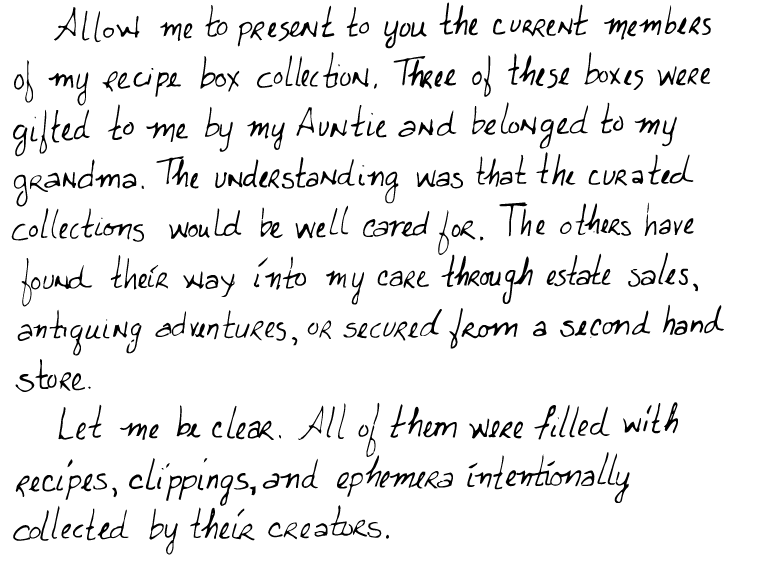 Allow me to present to you the current members
of my recipe box collection. Three of these boxes were
gifted to me by my Auntie and belonged to my
grandma. The understanding was that the curated
collections would be well cared for. The others have
found their way into my care through estate sales,
antiquing adventures, or secured from a second hand
store.
Let me be clear. All of them were filled with
recipes, clippings, and ephemera intentionally
collected by their creators.